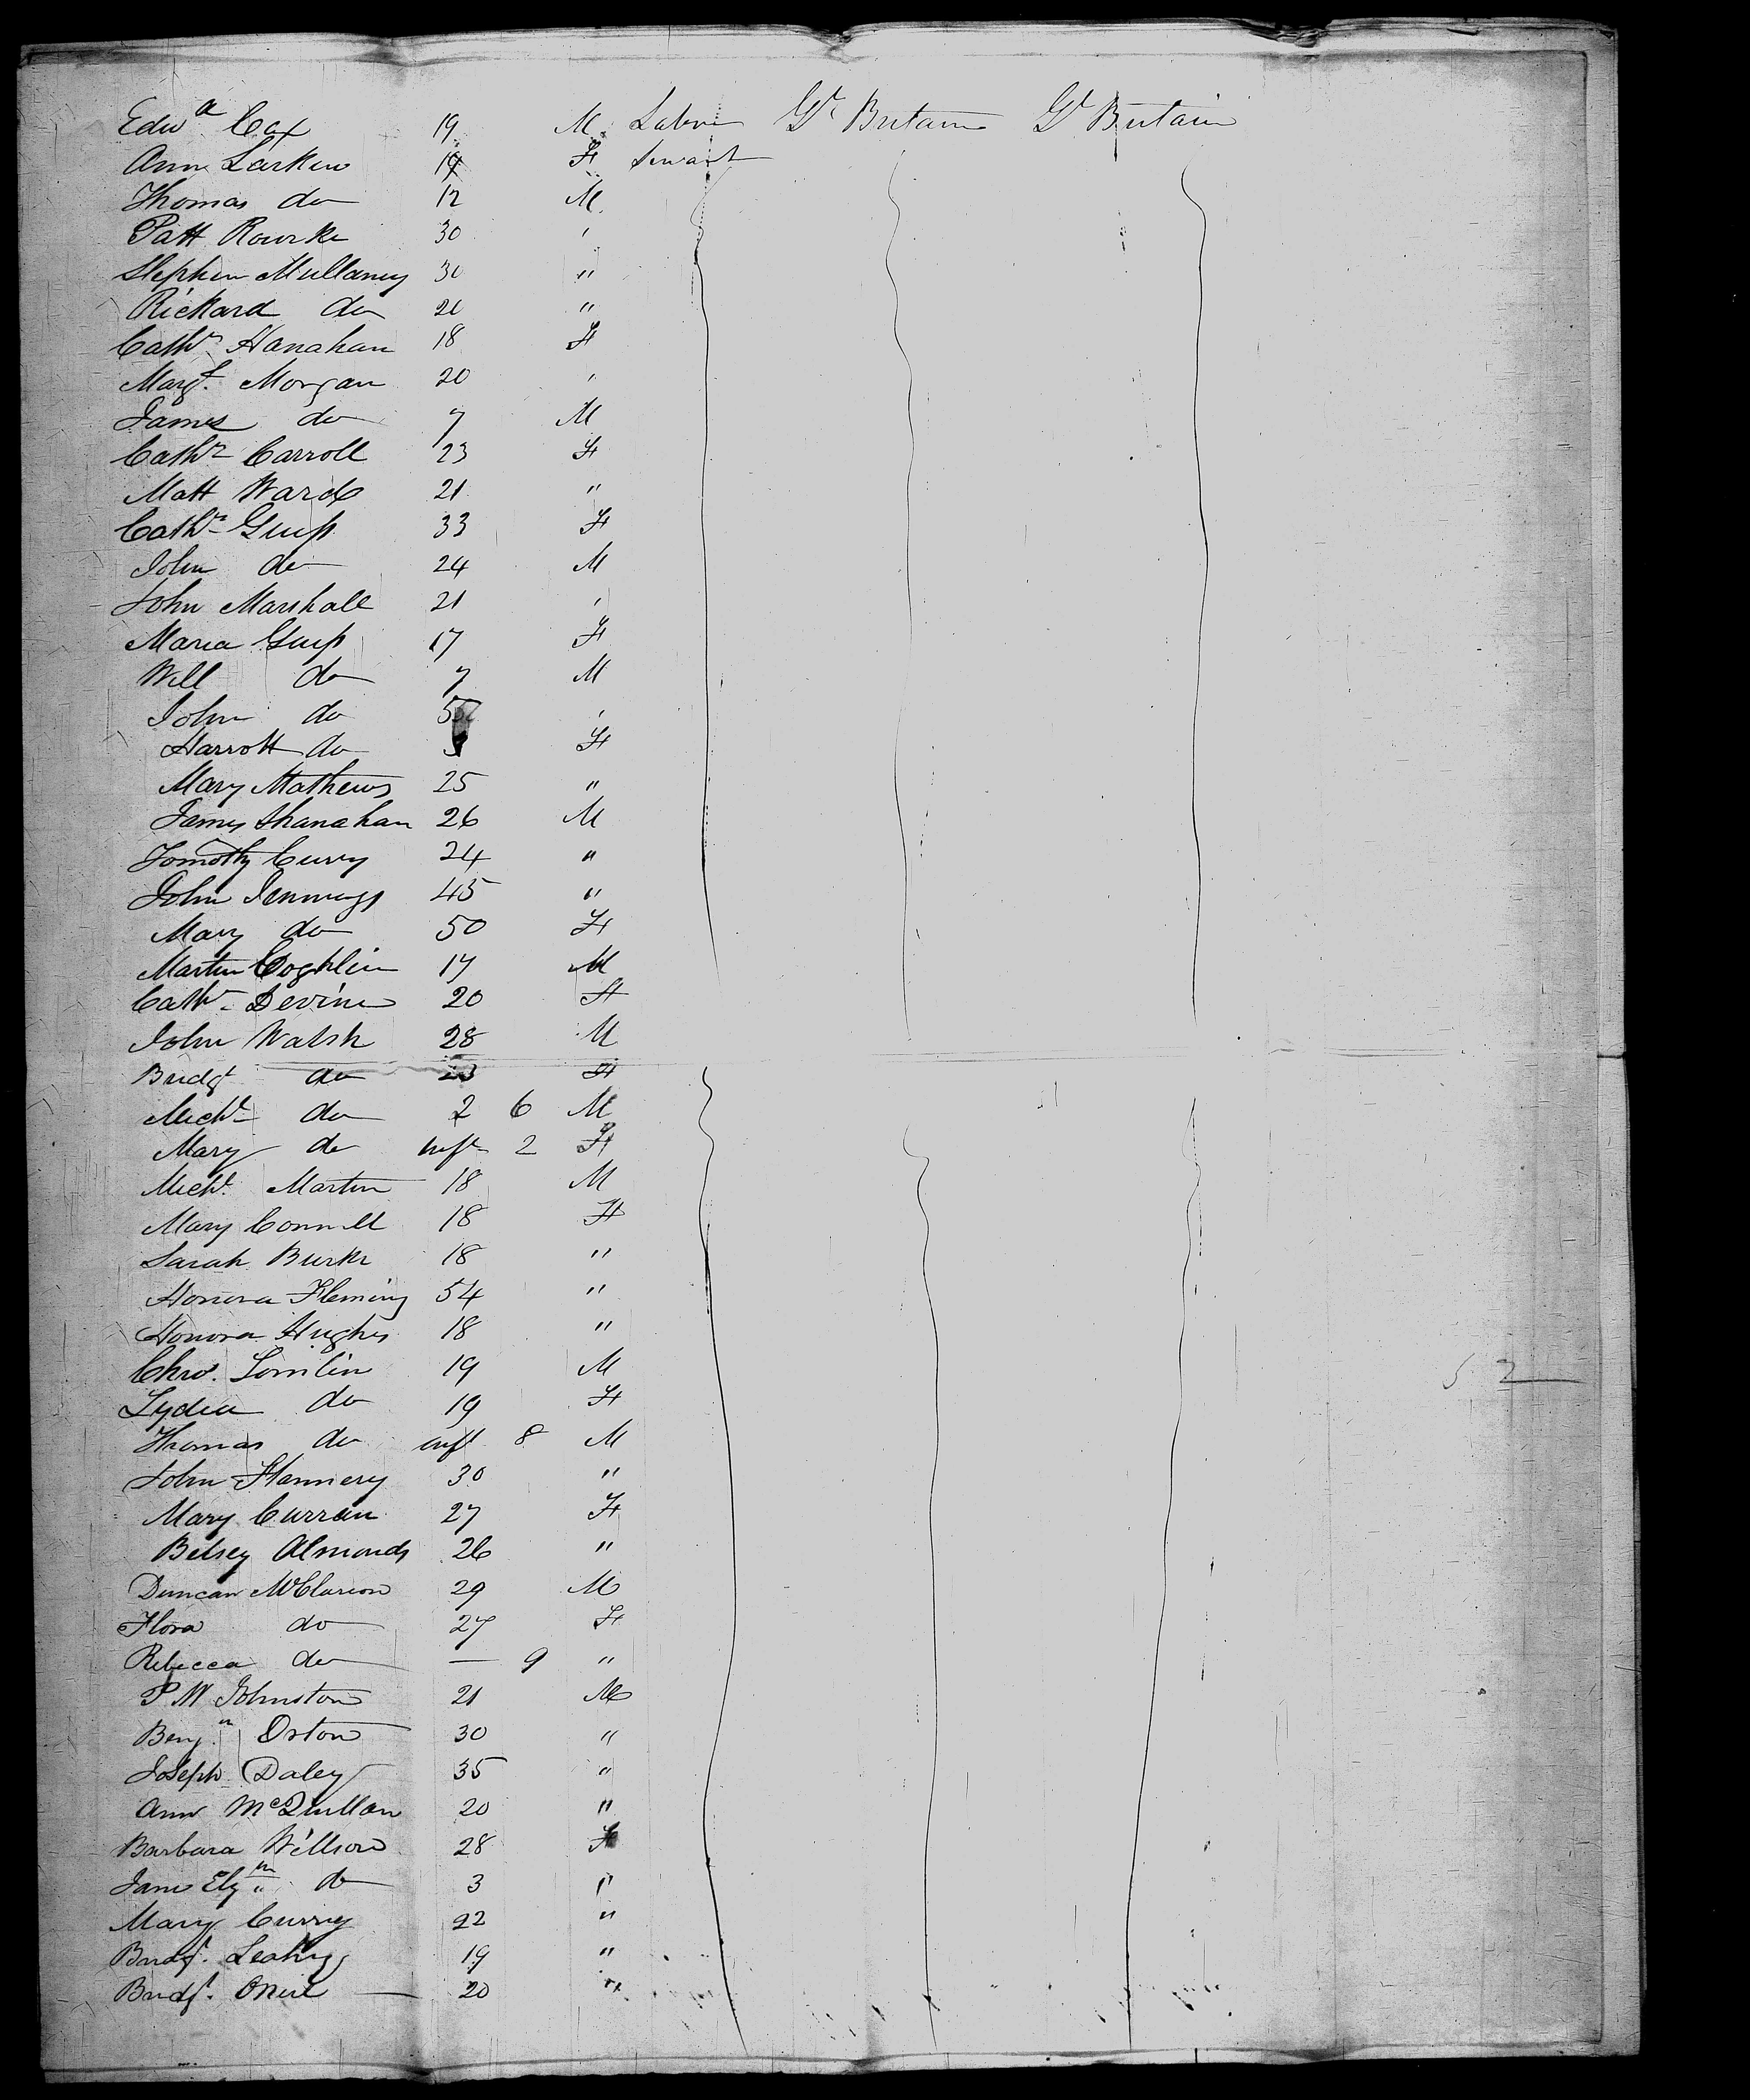 Edwd Cox 19 M Labour Gt Britain Gt Britain
Ann Larkin 19 F Servant
Thomas do 12 M
Patt Rourke 30 "
Stephen Mullaney 30 "
Rickard do 20 "
Cathn Hanahan 18 F
Margt Morgan 20 "
James do 7 M
Cathn Carroll 23 F
Matt Ward 21 "
Cathn 33 F
John do 24 M
John Marshall 21 "
Maria 17 F
Will do 7 M
John do "
Harrott do F
Mary Mathews 25 "
James Shanahan 26 M
Tomothy Curry 24 "
John Jennings 45 "
Mary do 50 F
Martin Coghlin 17 M
Cathn Devine 20 F
John Walsh 28 M
Bridgt do 23 F
Michl do 2 6 M
Mary do inft 2 F
Michl Martin 18 M
Mary Connell 18 F
Sarah Burke 18 "
Honora Fleming 54 "
Honora Hughes 18 "
Chrs. Tomlin 19 M
Lydia do 19 F
Thomas do inft 8 M
John Flannery 30 "
Mary Curran 27 F
Betsey Almonds 26 "
Duncan McClarion 29 M
Flora do 27 F
Rebecca do — 9 "
P W Johnston 21 M
Benjn Orton 30 "
Joseph Daley 35 "
Ann McQuillan 20 "
Barbara Willson 28 F
Jane Elzth do 3 "
Mary Curry 22 "
Bridgt. Leahy 19 "
Bridgt. ONeil — 20 "
52